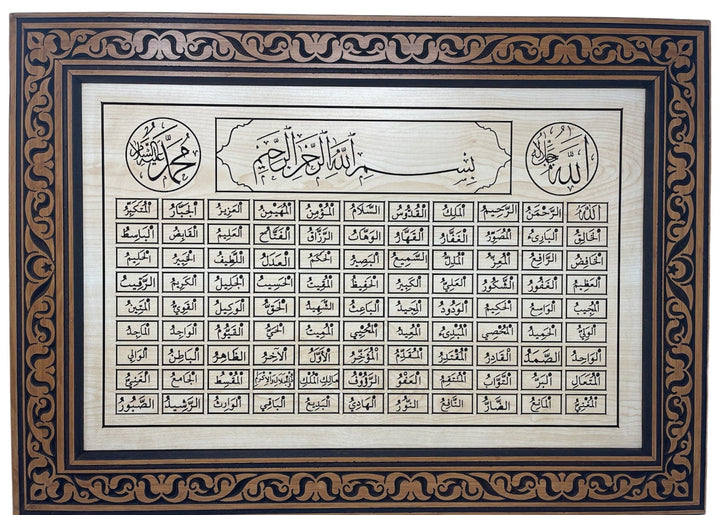 الله جل جلاله
بِسْمِ اللهِ الرَّحْمٰنِ الرَّحِيمِ
محمد عليه السلام
اَللهُ اَلرَّحْمٰنُ اَلرَّحِيمُ اَلْمَلِكُ اَلْقُدُّوسُ اَلسَّلَامُ اَلْمُؤْمِنُ اَلْمُهَيْمِنُ اَلْعَزِيزُ اَلْجَبَّارُ اَلْمُتَكَبِّرُ
اَلْخَالِقُ اَلْبَارِئُ اَلْمُصَوِّرُ اَلْغَفَّارُ اَلْقَهَّارُ اَلْوَهَّابُ اَلرَّزَّاقُ اَلْفَتَّاحُ اَلْعَلِيمُ اَلْقَابِضُ اَلْبَاسِطُ
اَلْخَافِضُ اَلرَّافِعُ اَلْمُعِزُّ اَلْمُذِلُّ اَلسَّمِيعُ اَلْبَصِيرُ اَلْحَكَمُ اَلْعَدْلُ اَللَّطِيفُ اَلْخَبِيرُ اَلْحَلِيمُ
اَلْعَظِيمُ اَلْغَفُورُ اَلشَّكُورُ اَلْعَلِيُّ اَلْكَبِيرُ اَلْحَفِيظُ اَلْمُقِيتُ اَلْحَسِيبُ اَلْجَلِيلُ اَلْكَرِيمُ اَلرَّقِيبُ
اَلْمُجِيبُ اَلْوَاسِعُ اَلْحَكِيمُ اَلْوَدُودُ اَلْمَجِيدُ اَلْبَاعِثُ اَلشَّهِيدُ اَلْحَقُّ اَلْوَكِيلُ اَلْقَوِيُّ اَلْمَتِينُ
اَلْوَلِيُّ اَلْحَمِيدُ اَلْمُحْصِي اَلْمُبْدِئُ اَلْمُعِيدُ اَلْمُحْيِي اَلْمُمِيتُ اَلْحَيُّ اَلْقَيُّومُ اَلْوَاجِدُ اَلْمَاجِدُ
اَلْوَاحِدُ اَلصَّمَدُ اَلْقَادِرُ اَلْمُقْتَدِرُ اَلْمُقَدِّمُ اَلْمُؤَخِّرُ اَلْأَوَّلُ اَلْآخِرُ اَلظَّاهِرُ اَلْبَاطِنُ اَلْوَالِي
اَلْمُتَعَالِ اَلْبَرُّ اَلتَّوَّابُ اَلْمُنْتَقِمُ اَلْعَفُوُّ اَلرَّؤُوفُ مَالِكُ الْمُلْكِ ذُو الْجَلَالِ وَالْإِكْرَامِ اَلْمُقْسِطُ اَلْجَامِعُ اَلْغَنِيُّ
اَلْمُغْنِي اَلْمَانِعُ اَلضَّارُّ اَلنَّافِعُ اَلنُّورُ اَلْهَادِي اَلْبَدِيعُ اَلْبَاقِي اَلْوَارِثُ اَلرَّشِيدُ اَلصَّبُورُ